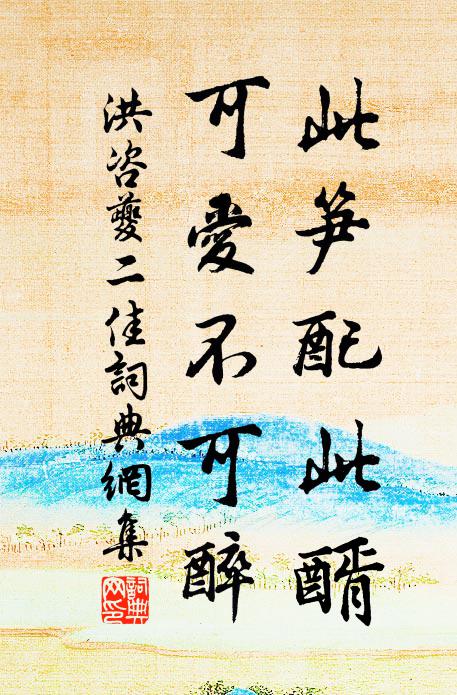 此笋配此醑
可愛不可醉
洪咨夔二佳詞典網集
詞典